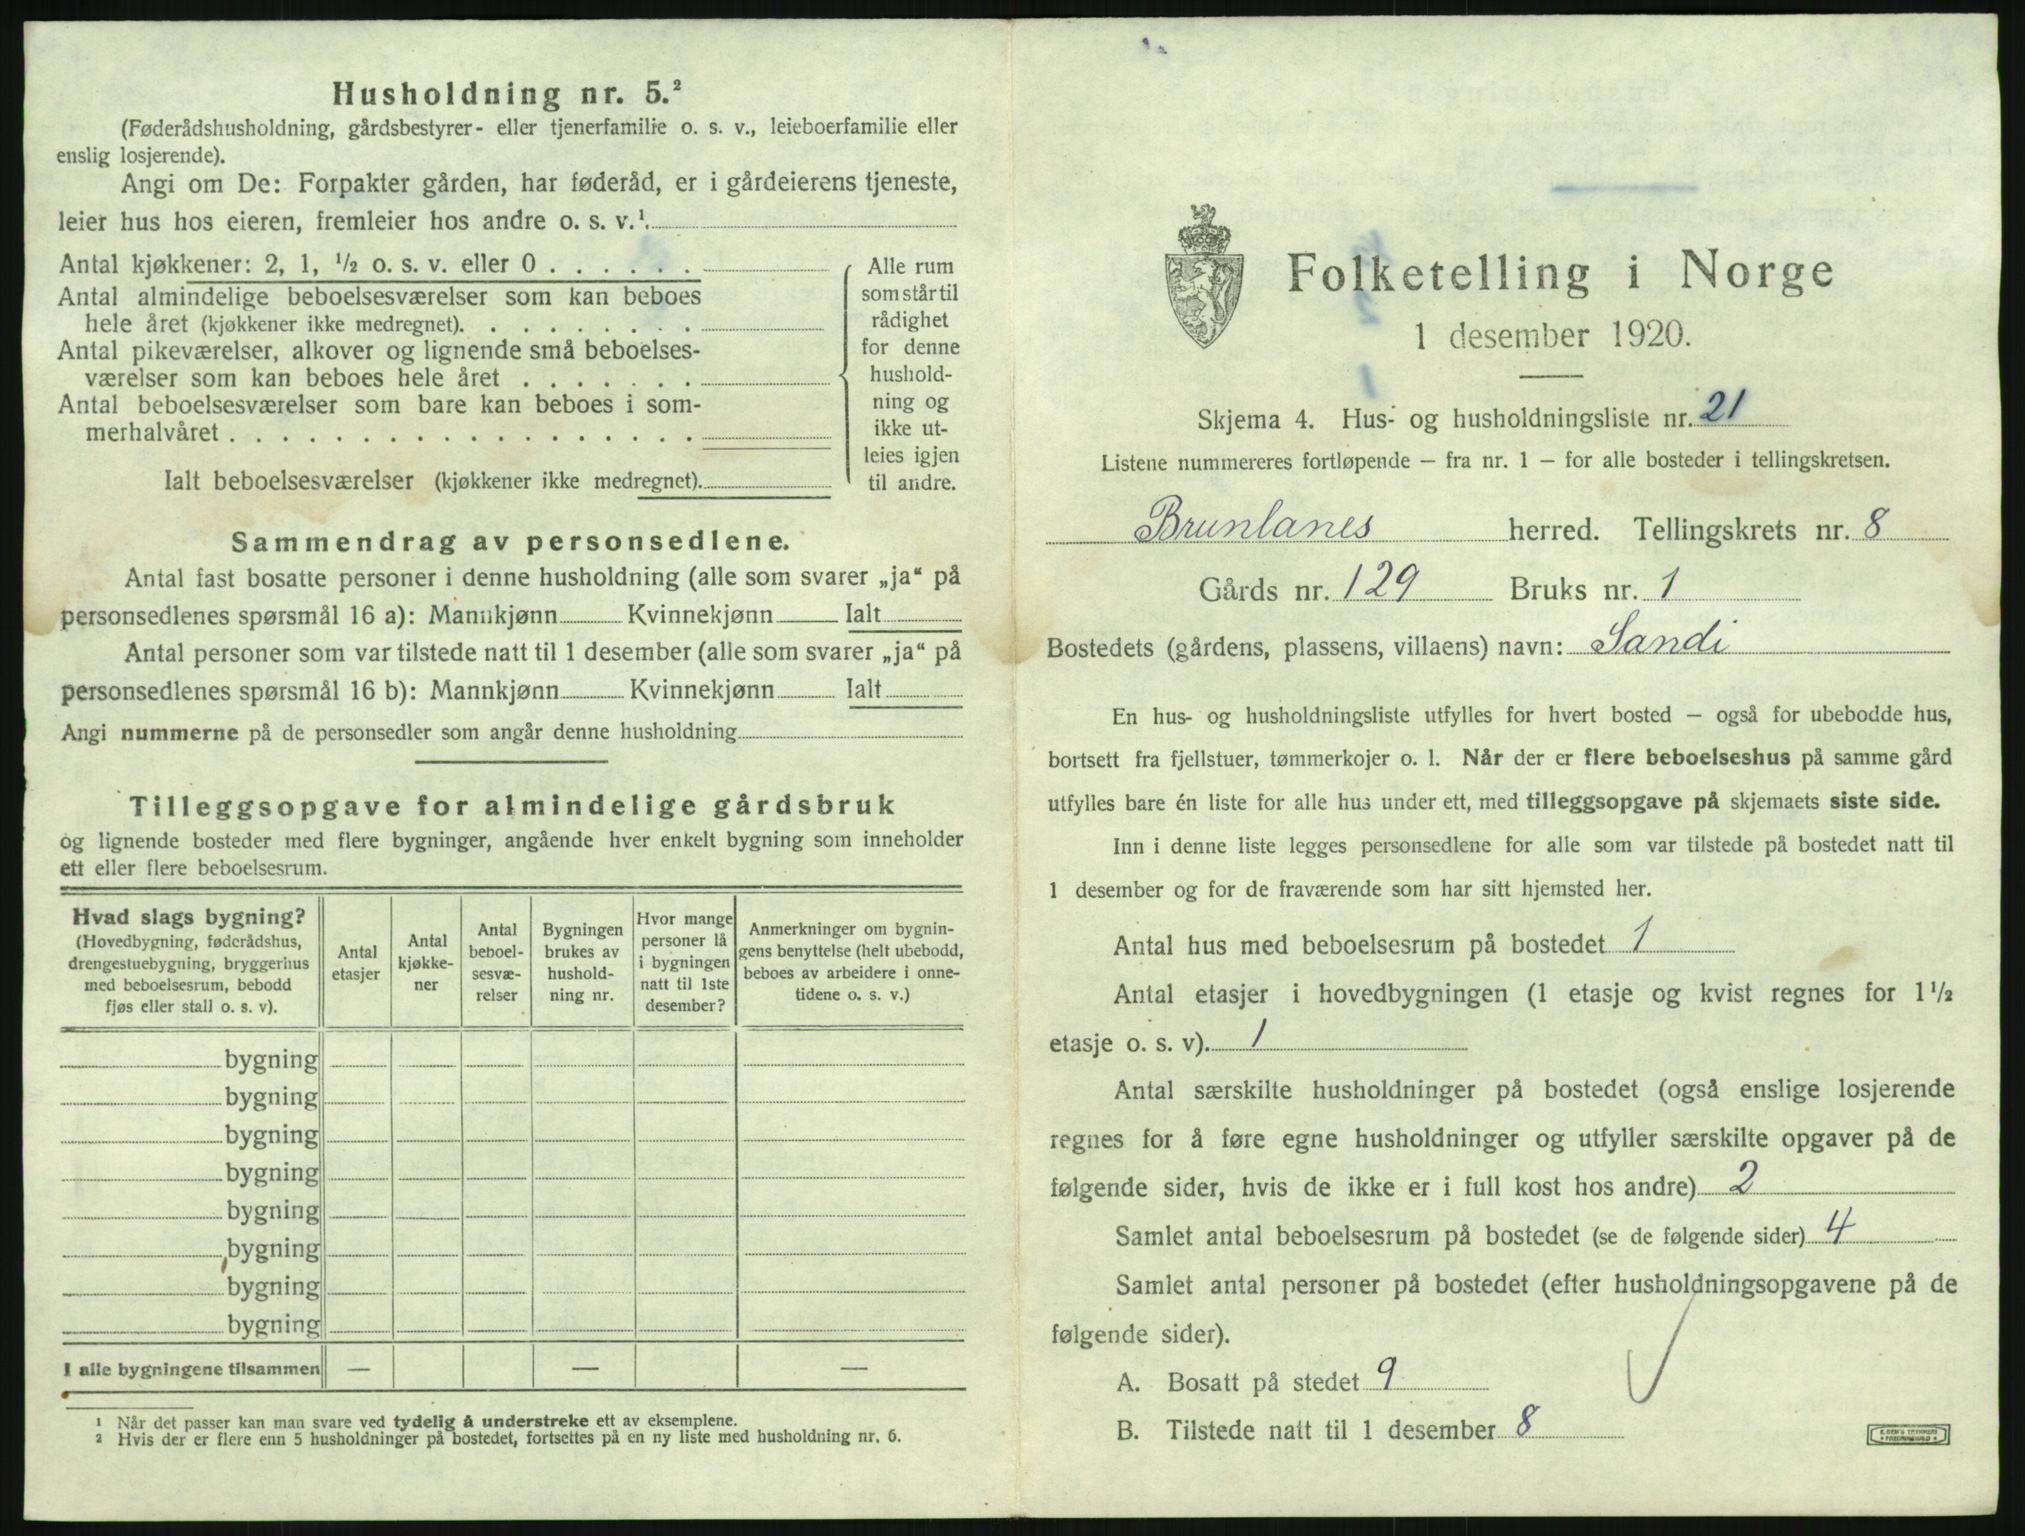 Husholdning nr. 5.²
(Føderådshusholdning, gårdsbestyrer- eller tjenerfamilie o. s. v., leieboerfamilie eller
enslig losjerende).
Angi om De: Forpakter gården, har føderåd, er i gårdeierens tjeneste,
leier hus hos eieren, fremleier hos andre o. s. v.¹.
Antal kjøkkener: 2, 1, ½ o. s. v. eller 0 . . . . . .
Antal almindelige beboelsesværelser som kan beboes
hele året (kjøkkener ikke medregnet). . . . . . . . .
Antal pikeværelser, alkover og lignende små beboelses-
værelser som kan beboes hele året . . . . . . .
Antal beboelsesværelser som bare kan beboes i som-
merhalvåret . . . . . . . . . . . . . . . .
Ialt beboelsesværelser (kjøkkener ikke medregnet).
Alle rum
som står til
rådighet
for denne
hushold-
ning og
ikke ut-
leies igjen
til andre.
Sammendrag av personsedlene.
Antal fast bosatte personer i denne husholdning (alle som svarer „ja“ på
personsedlenes spørsmål 16 a): Mannkjønn Kvinnekjønn Ialt
Antal personer som var tilstede natt til 1 desember (alle som svarer „ja“ på
personsedlenes spørsmål 16 b): Mannkjønn Kvinnekjønn Ialt
Angi nummerne på de personsedler som angår denne husholdning
Tilleggsopgave for almindelige gårdsbruk
og lignende bosteder med flere bygninger, angående hver enkelt bygning som inneholder
ett eller flere beboelsesrum.
Hvad slags bygning?
(Hovedbygning, føderådshus,
drengestuebygning, bryggerhus
med beboelsesrum, bebodd
fjøs eller stall o. s. v).
Antal
etasjer
Antal
kjøkke-
ner
Antal
beboel-
sesvæ-
relser
Bygningen
brukes av
hushold-
ning nr.
Hvor mange
personer lå
i bygningen
natt til 1ste
desember?
Anmerkninger om bygnin-
gens benyttelse (helt ubebodd,
beboes av arbeidere i onne-
tidene o. s. v.)
bygning
bygning
bygning
bygning
bygning
bygning
bygning
bygning
I alle bygningene tilsammen — — —
¹ Når det passer kan man svare ved tydelig å understreke ett av eksemplene.
² Hvis der er flere enn 5 husholdninger på bostedet, fortsettes på en ny liste med husholdning nr. 6.
Folketelling i Norge
1 desember 1920.
Skjema 4. Hus- og husholdningsliste nr. 21
Listene nummereres fortløpende — fra nr. 1 — for alle bosteder i tellingskretsen.
Brunlanes herred. Tellingskrets nr. 8
Gårds nr. 129 Bruks nr. 1
Bostedets (gårdens, plassens, villaens) navn: Sandi
En hus- og husholdningsliste utfylles for hvert bosted — også for ubebodde hus,
bortsett fra fjellstuer, tømmerkojer o. l. Når der er flere beboelseshus på samme gård
utfylles bare én liste for alle hus under ett, med tilleggsopgave på skjemaets siste side.
Inn i denne liste legges personsedlene for alle som var tilstede på bostedet natt til
1 desember og for de fraværende som har sitt hjemsted her.
Antal hus med beboelsesrum på bostedet 1
Antal etasjer i hovedbygningen (1 etasje og kvist regnes for 1½
etasje o. s. v). 1
Antal særskilte husholdninger på bostedet (også enslige losjerende
regnes for å føre egne husholdninger og utfyller særskilte opgaver på de
følgende sider, hvis de ikke er i full kost hos andre) 2
Samlet antal beboelsesrum på bostedet (se de følgende sider) 4
Samlet antal personer på bostedet (efter husholdningsopgavene på de
følgende sider).
A. Bosatt på stedet 9
B. Tilstede natt til 1 desember 8